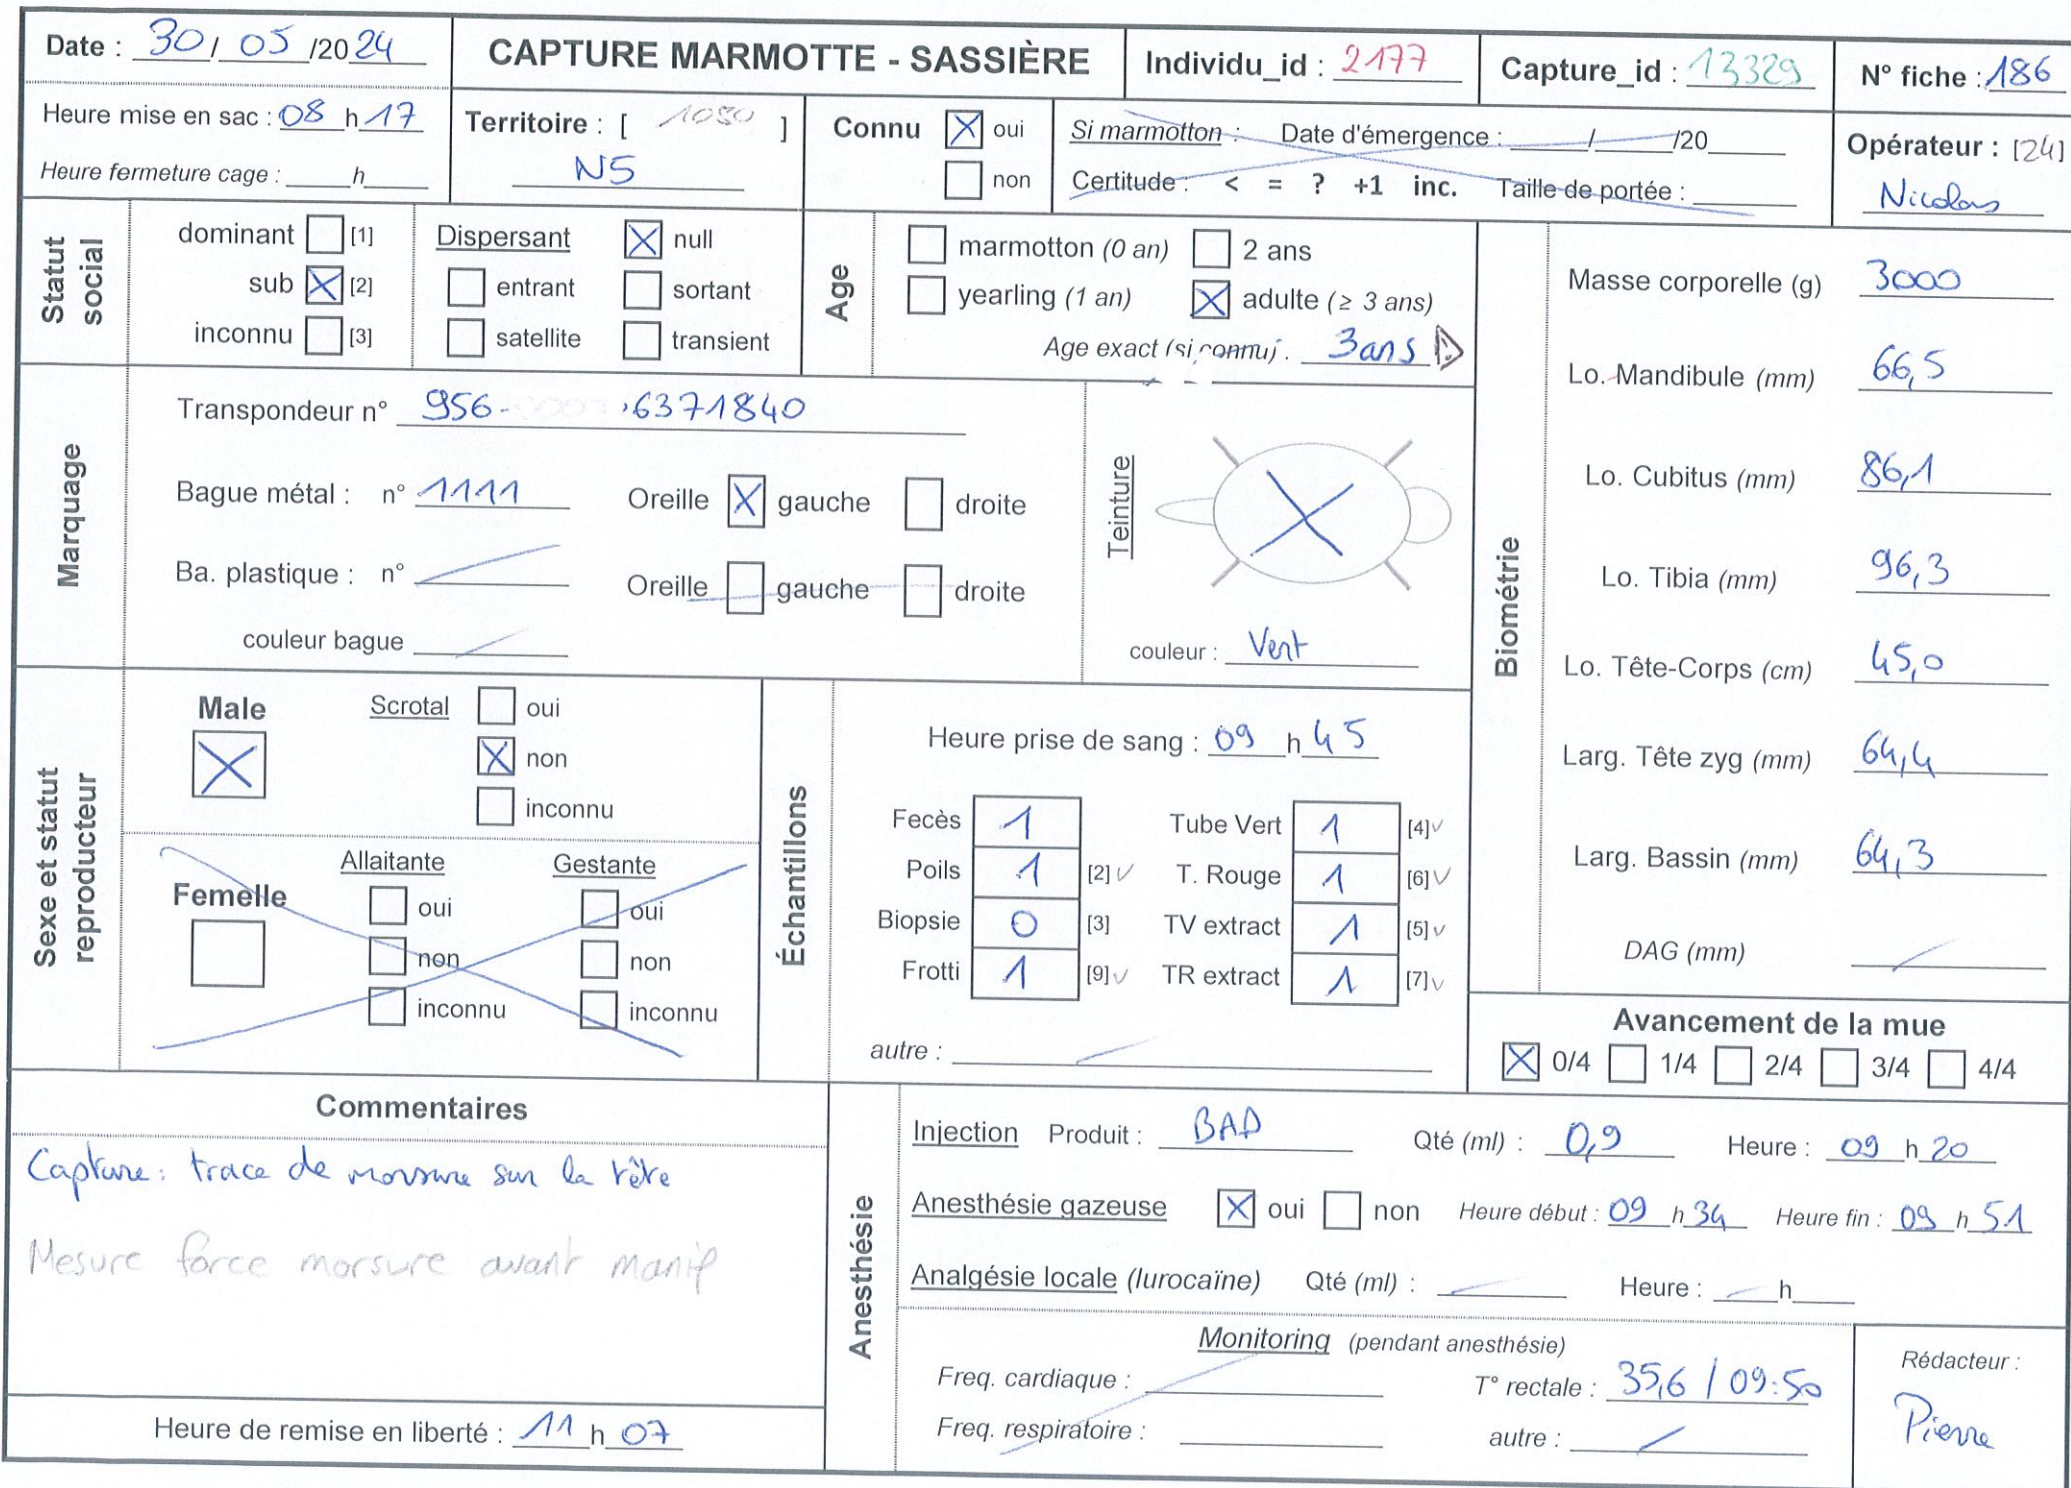 Date : 30/ 05 /2024
CAPTURE MARMOTTE - SASSIÈRE
Individu_id : 2177
Capture_id : 13329
N° fiche : 186
Heure mise en sac : 08 h 17
Heure fermeture cage : ____h____
Territoire : [ 1030 ]
N5
Connu oui
non
Si marmotton : Date d'émergence : ____/____/20____
Certitude : < = ? +1 inc. Taille de portée :
Opérateur : [24]
Nicolas
Statut social
dominant [1]
sub [2]
inconnu [3]
Dispersant null
entrant sortant
satellite transient
Age
marmotton (0 an) 2 ans
yearling (1 an) adulte (≥ 3 ans)
Age exact (si connu) : 3 ans
Marquage
Transpondeur n° 956- 6371840
Bague métal : n° 1111 Oreille gauche droite
Ba. plastique : n° Oreille gauche droite
couleur bague
Teinture
couleur : Vert
Biométrie
Masse corporelle (g) 3000
Lo. Mandibule (mm) 66,5
Lo. Cubitus (mm) 86,1
Lo. Tibia (mm) 96,3
Lo. Tête-Corps (cm) 45,0
Larg. Tête zyg (mm) 64,4
Larg. Bassin (mm) 64,3
DAG (mm)
Sexe et statut reproducteur
Male
Scrotal oui
non
inconnu
Femelle
Allaitante Gestante
oui oui
non non
inconnu inconnu
Échantillons
Heure prise de sang : 09 h 45
Fecès 1 Tube Vert 1 [4]✓
Poils 1 [2]✓ T. Rouge 1 [6]✓
Biopsie 0 [3] TV extract 1 [5]✓
Frotti 1 [9]✓ TR extract 1 [7]✓
autre :
Avancement de la mue
0/4 1/4 2/4 3/4 4/4
Commentaires
Capture : trace de morsure sur la tête
Mesure force morsure avant manip
Heure de remise en liberté : 11 h 07
Anesthésie
Injection Produit : BAD Qté (ml) : 0,9 Heure : 09 h 20
Anesthésie gazeuse oui non Heure début : 09 h 34 Heure fin : 09 h 51
Analgésie locale (lurocaïne) Qté (ml) : Heure : ____h____
Monitoring (pendant anesthésie)
Freq. cardiaque : T° rectale : 35,6 / 09:50
Freq. respiratoire : autre :
Rédacteur :
Pierre